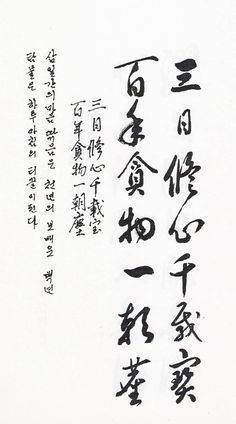 三日修心千载宝
百年貪物一朝塵
三日修心千載宝
百年貪物一朝塵
삼일간의 마음 닦음은 천년의 보배요 백년
탐물은 하루아침의 티끌이 된다